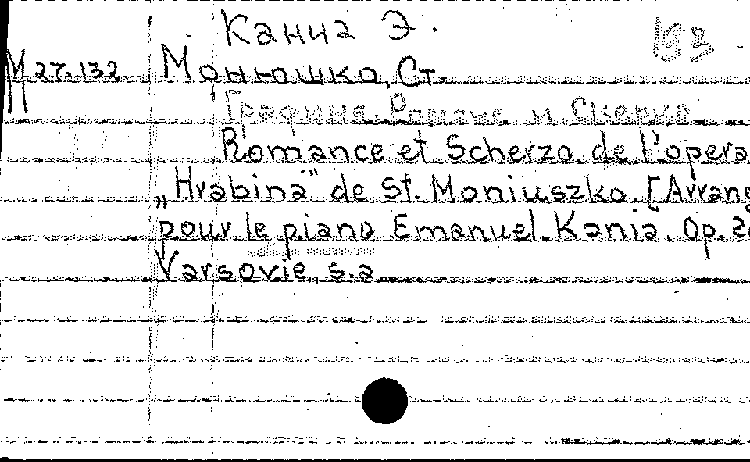 Каниа Э.
М 27.132 Монюшко, Ст.
Графиня. Романс и Скерцо
Romance et Scherzo de l'opera
„Hrabina" de St. Moniuszko [Arrang
pour le piano Emanuel Kania. Op.
Varsovie, s.a.